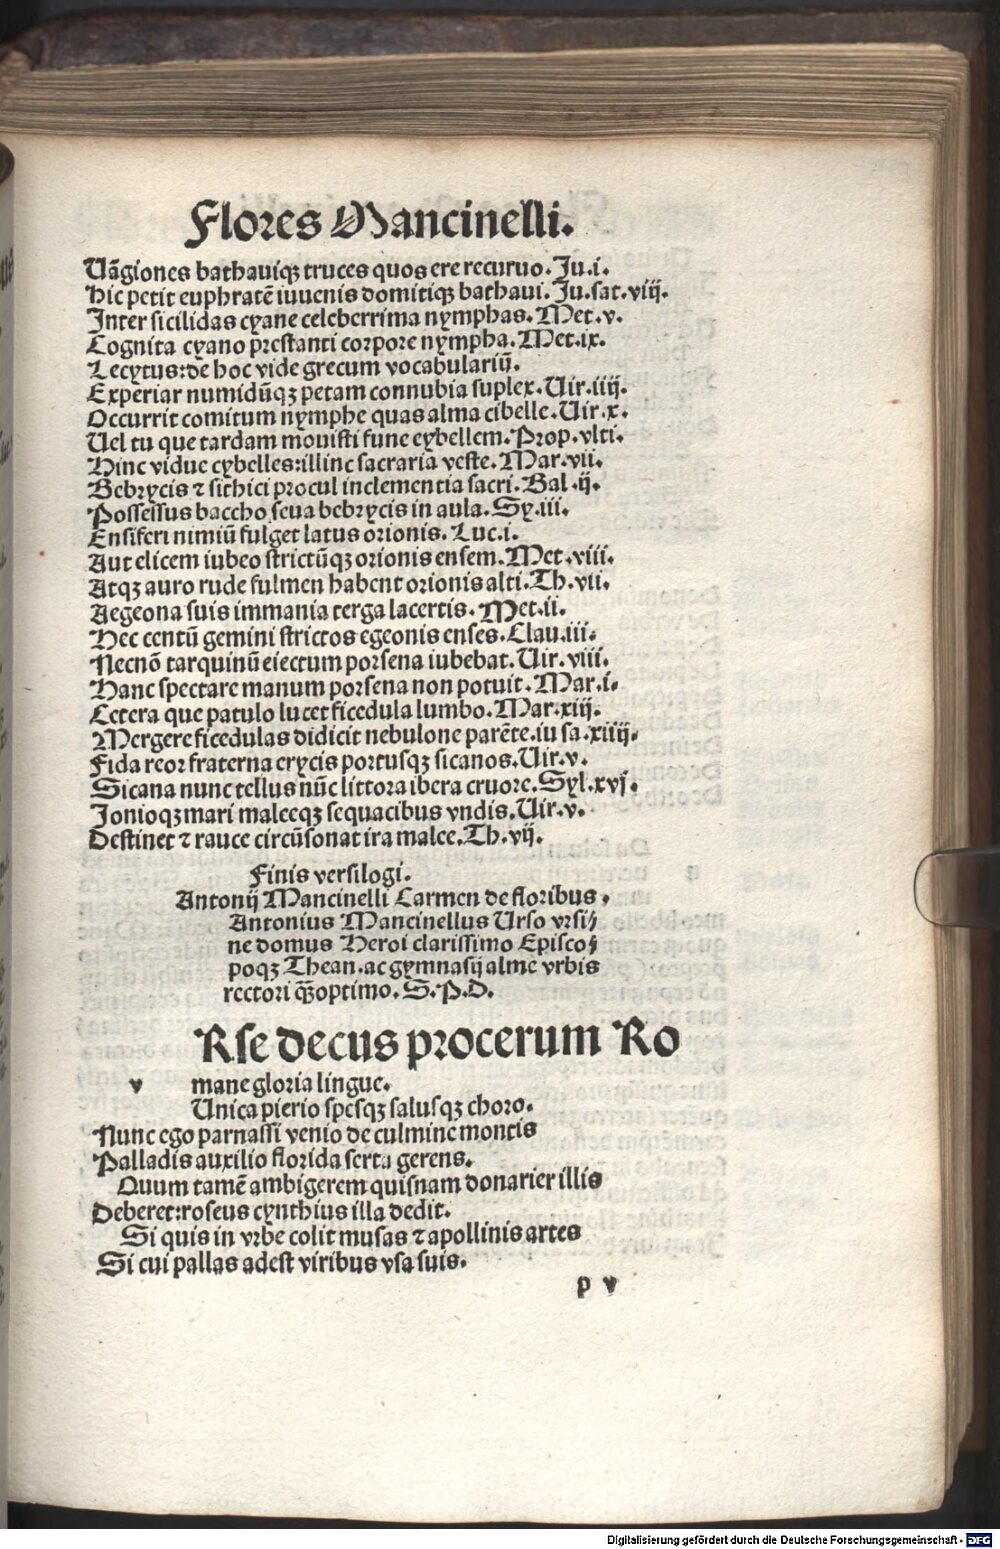 Flores Mancinelli.
Uãgiones bathauiqꝫ truces quos ere recuruo. Ju.i.
Hic petit euphratẽ iuuenis domitiqꝫ bathaui. Ju.sat.viij.
Inter sicilidas cyane celeberrima nymphas. Met.v.
Cognita cyano prestanti corpore nympha. Met.ix.
Lecytus:de hoc vide grecum vocabulariũ.
Experiar numidũqꝫ petam connubia suplex. Uir.iiij.
Occurrit comitum nymphe quas alma cibelle. Uir.x.
Uel tu que tardam mouisti fune cybellem. Prop.vlti.
Hinc vidue cybelles:illinc sacraria veste. Mar.vii.
Bebrycis ⁊ sithici procul inclementia sacri. Bal.ij.
Possessus baccho seua bebrycis in aula. Sy.iii.
Ensiferi nimiũ fulget latus orionis. Luc.i.
Aut elicem iubeo strictũqꝫ orionis ensem. Met.viii.
Atqꝫ auro rude fulmen habent orionis alti. Th.vii.
Aegeona suis immania terga lacertis. Met.ii.
Hec centũ gemini strictos egeonis enses. Clau.iii.
Necnõ tarquinũ eiectum porsena iubebat. Uir.viii.
Hanc spectare manum porsena non potuit. Mar.i.
Cetera que patulo lucet ficedula lumbo. Mar.xiij.
Mergere ficedulas didicit nebulone parẽte. iu sa.xiiij.
Fida reor fraterna erycis portusqꝫ sicanos. Uir.v.
Sicana nunc tellus nũc littora ibera cruore. Syl.xvj.
Jonioqꝫ mari maleeqꝫ sequacibus vndis. Uir.v.
Destinet ⁊ rauce circũsonat ira malee. Th.vij.
Finis versilogi.
Antonij Mancinelli Carmen de floribus.
Antonius Mancinellus Urso vrsi⸗
ne domus Heroi clarissimo Episco⸗
poqꝫ Thean. ac gymnasij alme vrbis
rectori qꝫ̃optimo. S.P.D.
Rse decus procerum Ro
v mane gloria lingue.
Unica pierio spesqꝫ salusqꝫ choro.
Nunc ego parnassi venio de culmine montis
Palladis auxilio florida serta gerens.
Quum tamẽ ambigerem quisnam donarier illis
Deberet:roseus cynthius illa dedit.
Si quis in vrbe colit musas ⁊ apollinis artes
Si cui pallas adest viribus vsa suis.
p v
Digitalisierung gefördert durch die Deutsche Forschungsgemeinschaft - DFG